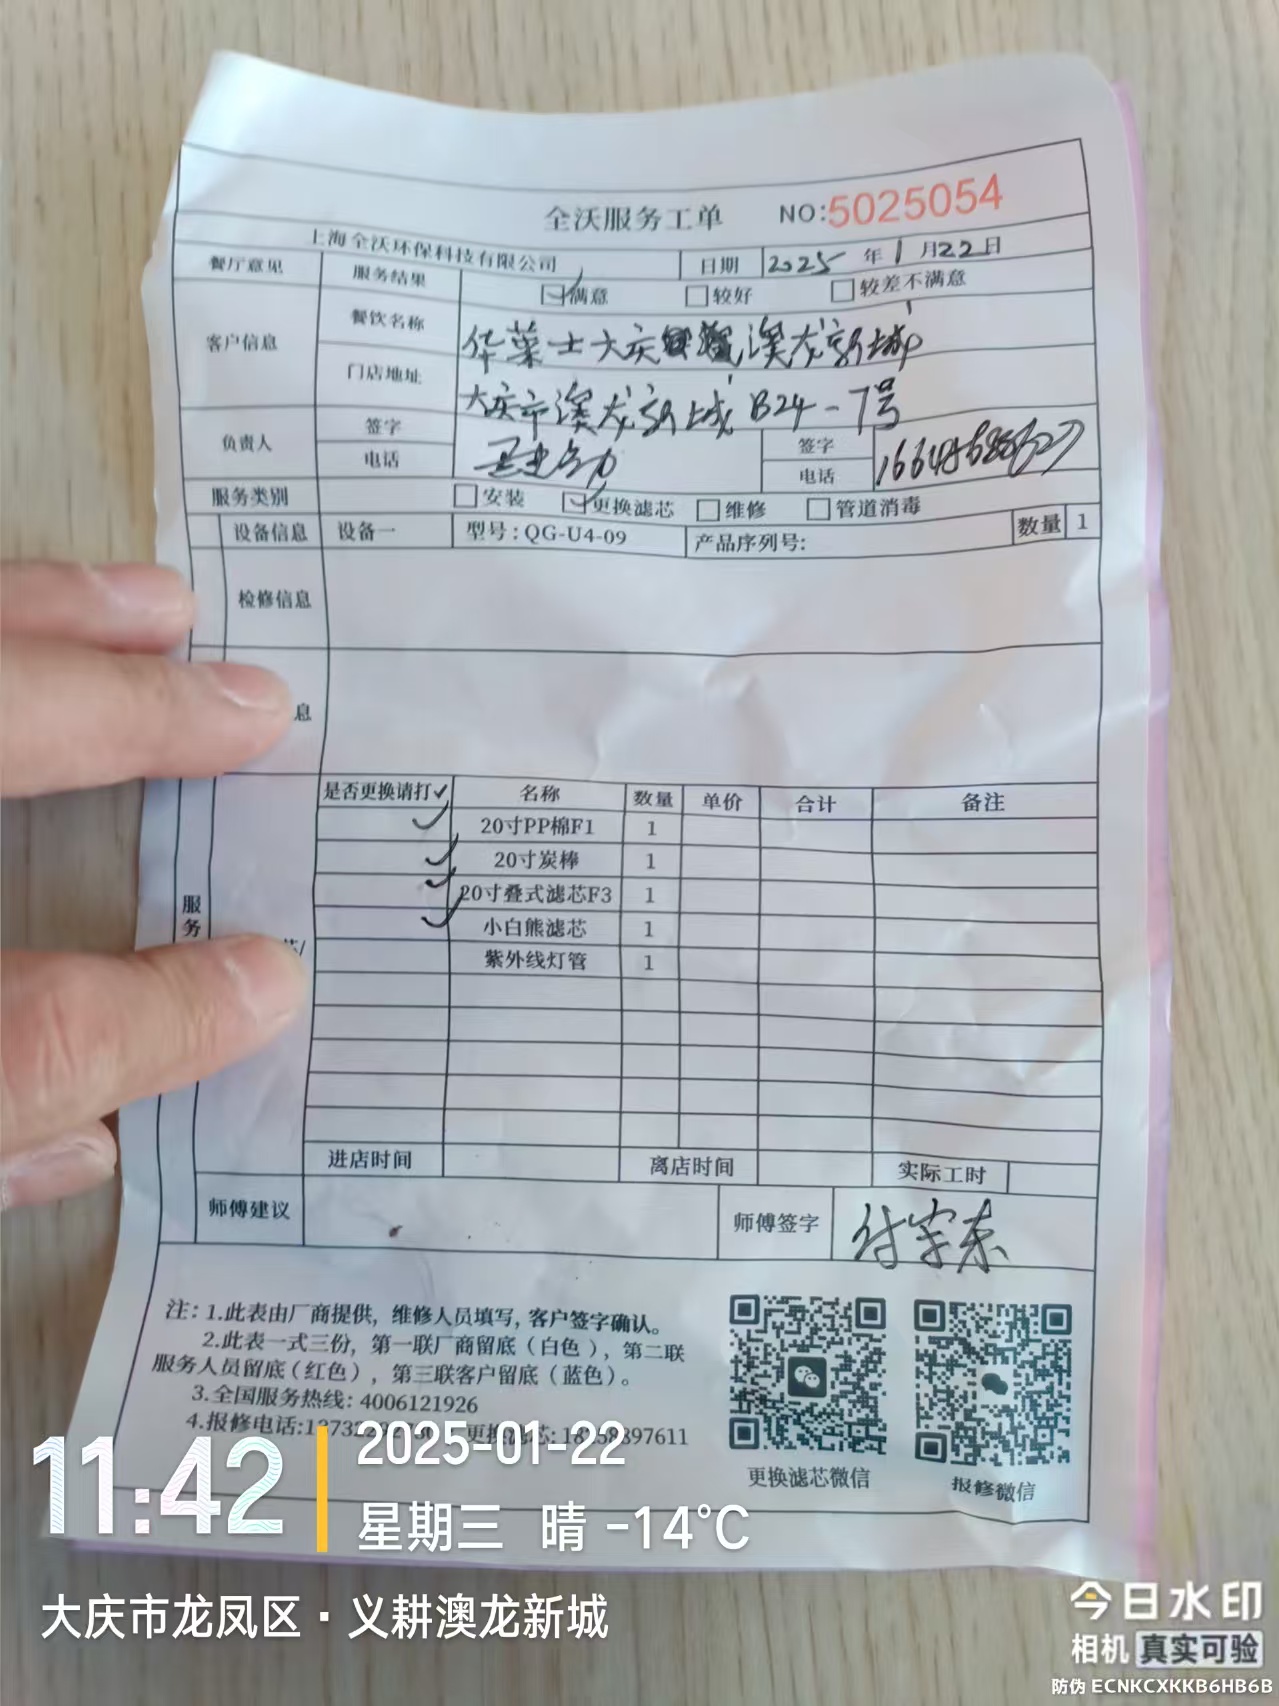 全沃服务工单 NO:5025054
上海全沃环保科技有限公司 日期 2025 年 1 月 22 日
餐厅意见 服务结果 满意 较好 较差不满意
客户信息 餐饮名称 华莱士大庆 澳龙新城
门店地址 大庆市澳龙新城 B24-7号
负责人 签字 签字
电话 电话
服务类别 安装 更换滤芯 维修 管道消毒
设备信息 设备一 型号:QG-U4-09 产品序列号: 数量 1
检修信息
息
是否更换请打✓ 名称 数量 单价 合计 备注
✓ 20寸PP棉F1 1
✓ 20寸炭棒 1
✓ 20寸叠式滤芯F3 1
✓ 小白熊滤芯 1
紫外线灯管 1
服务
芯/
进店时间 离店时间 实际工时
师傅建议 师傅签字
注:1.此表由厂商提供,维修人员填写,客户签字确认。
2.此表一式三份,第一联厂商留底(白色),第二联
服务人员留底(红色),第三联客户留底(蓝色)。
3.全国服务热线:4006121926
4.报修电话: 更换滤芯:
更换滤芯微信 报修微信
11:42 2025-01-22
星期三 晴 -14℃
大庆市龙凤区·义耕澳龙新城
今日水印
相机 真实可验
防伪 ECNKCXKKB6HB6B